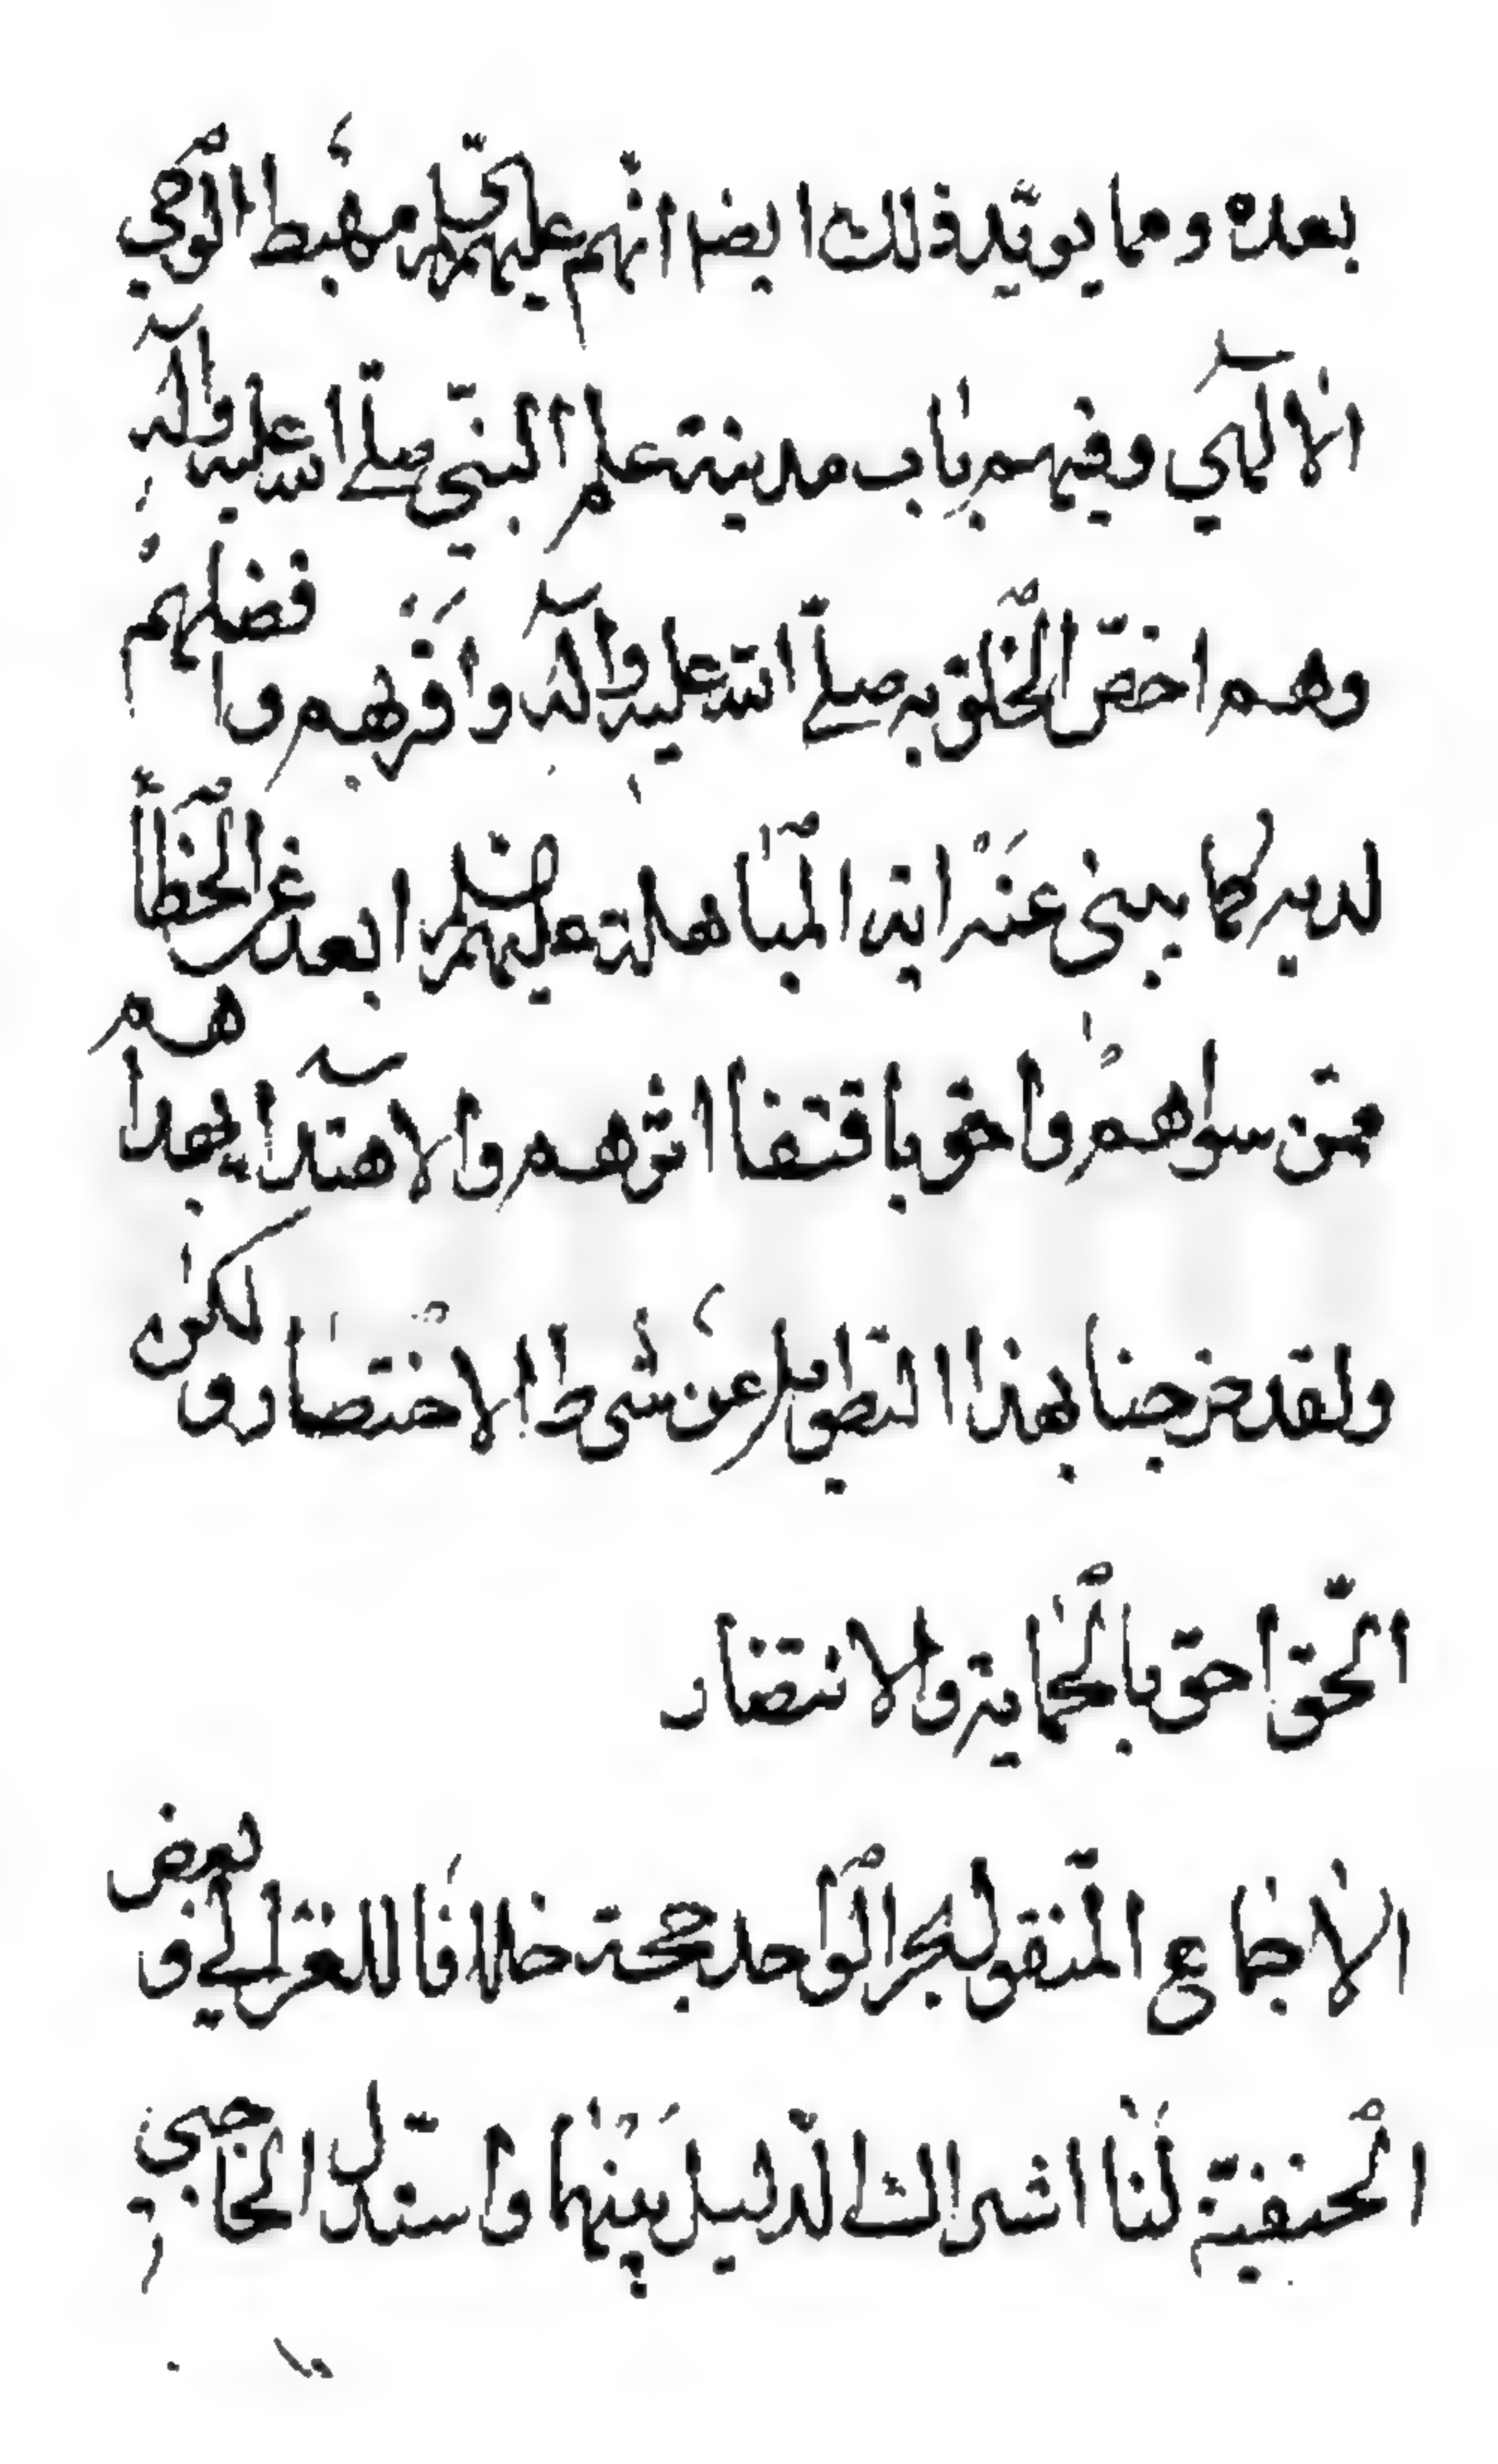 بعده ومما يؤيد ذلك ايضا انهم عليهم السلم مهبط الوحي
الالهي وفيهم باب مدينة علم النبي صلى الله عليه وآله
وهم اخص الخلق به صلى الله عليه وآله واقربهم وافضلهم
لديه كما يبنى عنه اية المباهلة عليهم السلم ابعد عن الخطأ
ممن سواهم واحق باقتفا اثرهم والاهتداء بهداهم
ولقد خرجنا بهذا التطويل عن شرط الاختصار ولكن
الحق احق بالحماية والانتصار
الاجماع المنقول بخبر الواحد حجة خلافا للغزالي وبعض
الحنفية لنا اشتراك الدليل بينهما واستدل الحاجبي